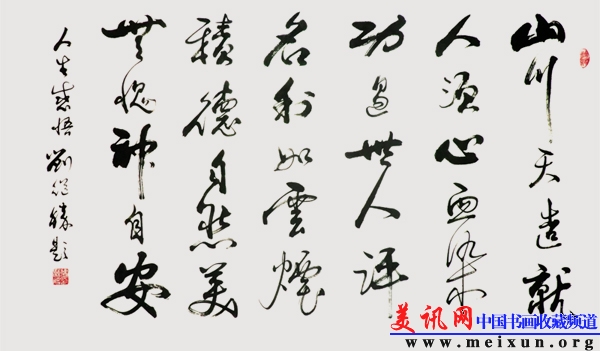 山川天造就
人須心血染
功過世人評
名利如雲煙
積德自然美
無愧神自安
人生感悟 劉從勝題
美讯网 中国书画收藏频道
www.meixun.org